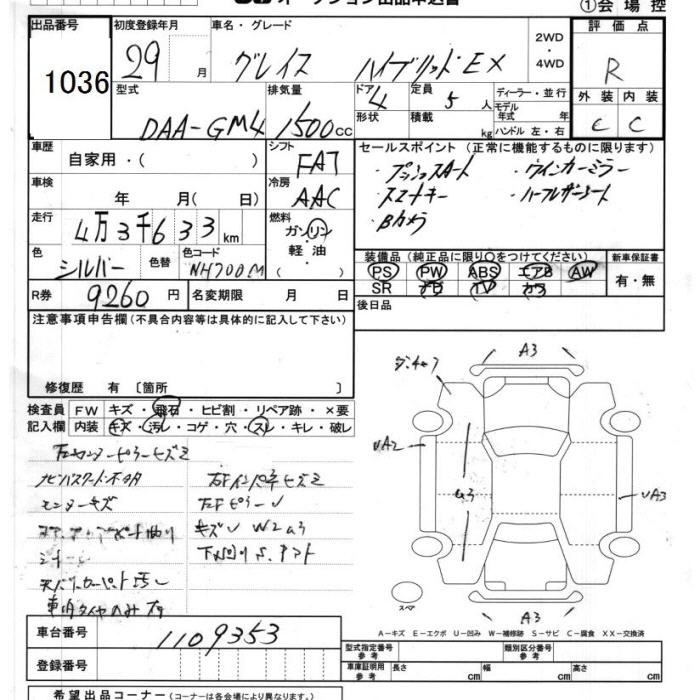 オークション出品申込書
①会場控
出品番号
1036
初度登録年月
29 月
車名・グレード
グレイス ハイブリッド・EX
2WD
・
4WD
評価点
R
型式
DAA-GM4
排気量
1500cc
ドア 4
形状
定員 5 人
積載 kg
ディーラー・並行
モデル
年式 年
ハンドル 左・右
外装 内装
C C
車歴
自家用・( )
シフト
FAT
セールスポイント (正常に機能するものに限ります)
・プッシュスタート ・ウインカーミラー
・スマートキー ・ハーフレザーシート
・Bカメラ
車検
年 月( 日)
冷房
AAC
走行
4万3千633km
燃料
ガソリン
・
軽・油
( )
色
シルバー
色替
色コード
NH700M
装備品 (純正品に限り○をつけてください)
新車保証書
PS PW ABS エアB AW
SR ナビ TV カワ
有・無
R券 9260円
名変期限 月 日
後日品
注意事項申告欄(不具合内容等は具体的に記入して下さい)
修復歴 有 〔箇所 〕
検査員
記入欄
FW キズ・飛石・ヒビ割・リペア跡・×要
内装 キズ・汚レ・コゲ・穴・スレ・キレ・破レ
左センターピラーキズミ
右Fインパネキズミ
左Fピラーレ
センターキズ
キズレ W2 U3
下廻りS.アフト
天バリカーペット汚レ
車内タイヤのみ有
A3
UA2
U3
UA3
A3
スペア
A-キズ E-エクボ U-凹み W-補修跡 S-サビ C-腐食 XX-交換済
車台番号
1109353
登録番号
型式指定番号
参考
類別区分番号
参考
車庫証明用
参考
長さ cm 幅 cm 高さ cm
希望出品コーナー(コーナーは各会場により異なります)